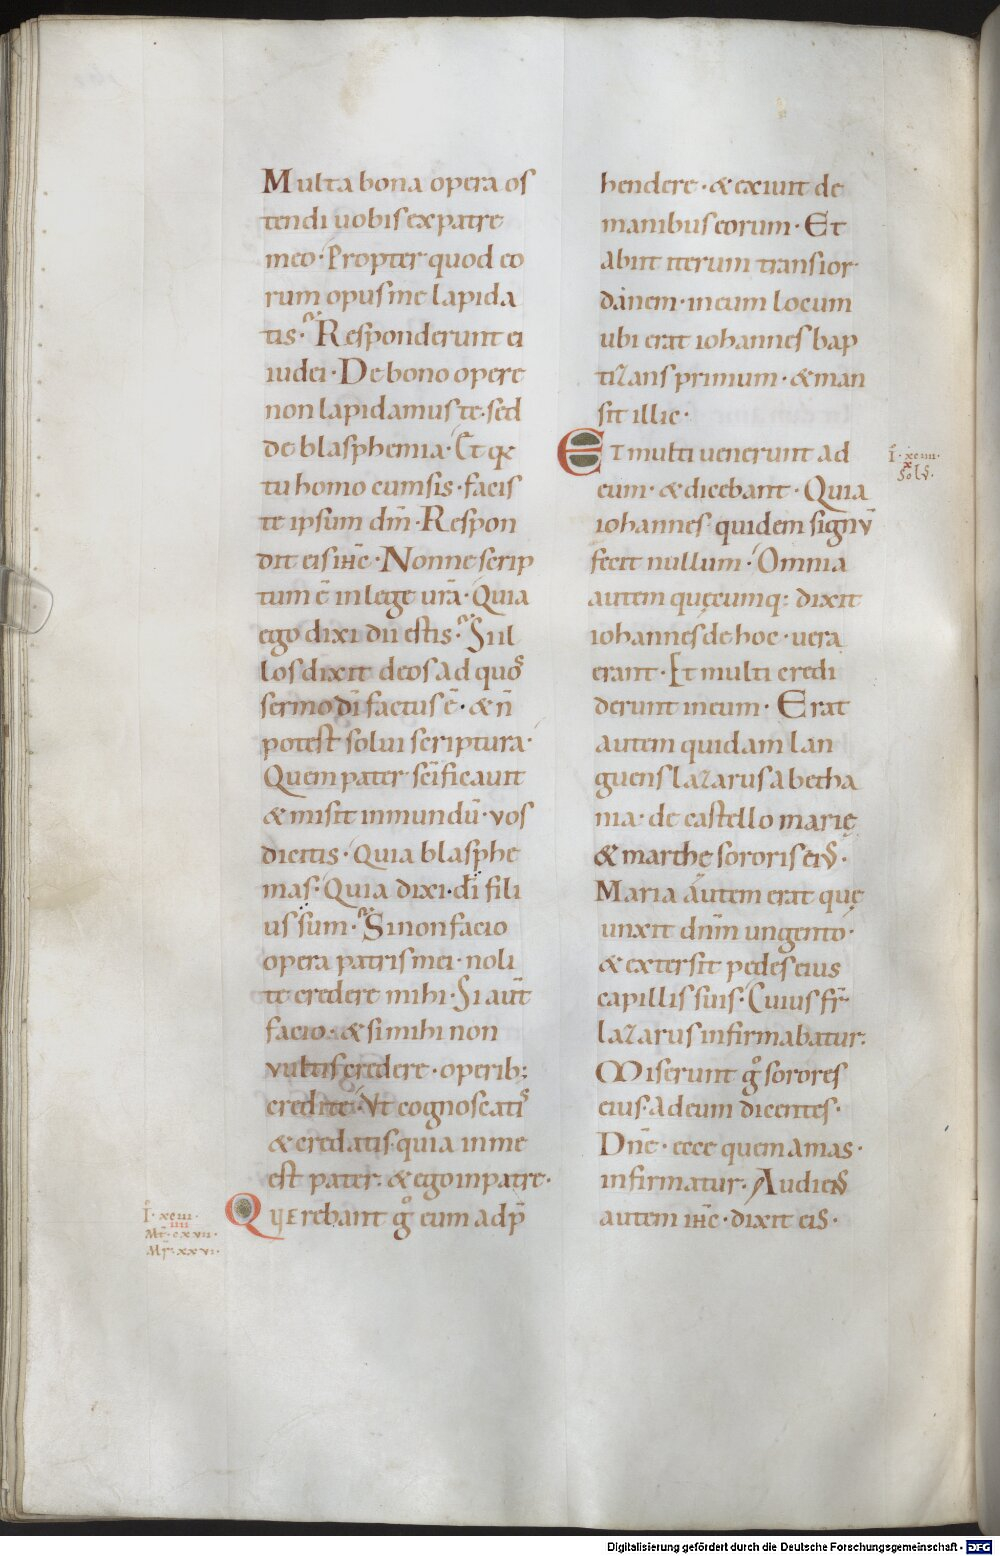 Multa bona opera os
tendi uobis ex patre
meo. Propter quod eo
rum opus me lapida
tis. Responderunt ei
iudei. De bono opere
non lapidamus te. sed
de blasphemia. Et q̄
tu homo cum sis. facis
te ipsum dm̄. Respon
dit eis ihc̄. Nonne scrip
tum ē in lege urā. Quia
ego dixi dii estis. Si il
los dixit deos ad quos
sermo dī factus ē. & n̄
potest solui scriptura.
Quem pater scīficauit
& misit in mundū. vos
dicitis. Quia blasphe
mas. Quia dixi. dī fili
us sum. Si non facio
opera patris mei. noli
te credere mihi. Si aut̄
facio. & si mihi non
vultis credere. operib;
credite. Vt cognoscatis
& credatis quia in me
est pater. & ego in patre.
Querebant gͦ eum adp̄
I. xciii.
IIII
Mt. cxvii.
Mr. xxvi.
hendere. & exiuit de
manibus eorum. Et
abiit iterum trans ior
danem. in eum locum
ubi erat iohannes bap
tizans primum. & man
sit illic.
Et multi uenerunt ad
eum. & dicebant. Quia
iohannes quidem signv̄
fecit nullum. Omnia
autem quęcumq: dixit
iohannes de hoc. uera
erant. Et multi credi
derunt in eum. Erat
autem quidam lan
guens lazarus a betha
nia. de castello marię
& marthę sororis eiꝰ.
Maria autem erat quę
unxit dnm̄ ungento.
& extersit pedes eius
capillis suis. Cuius fr̄
lazarus infirmabatur.
Miserunt gͦ sorores
eius ad eum dicentes.
Dnē. ecce quem amas.
infirmatur. Audiens
autem ihc̄. dixit eis.
I. xciiii.
x
Solꝰ.
Digitalisierung gefördert durch die Deutsche Forschungsgemeinschaft - DFG